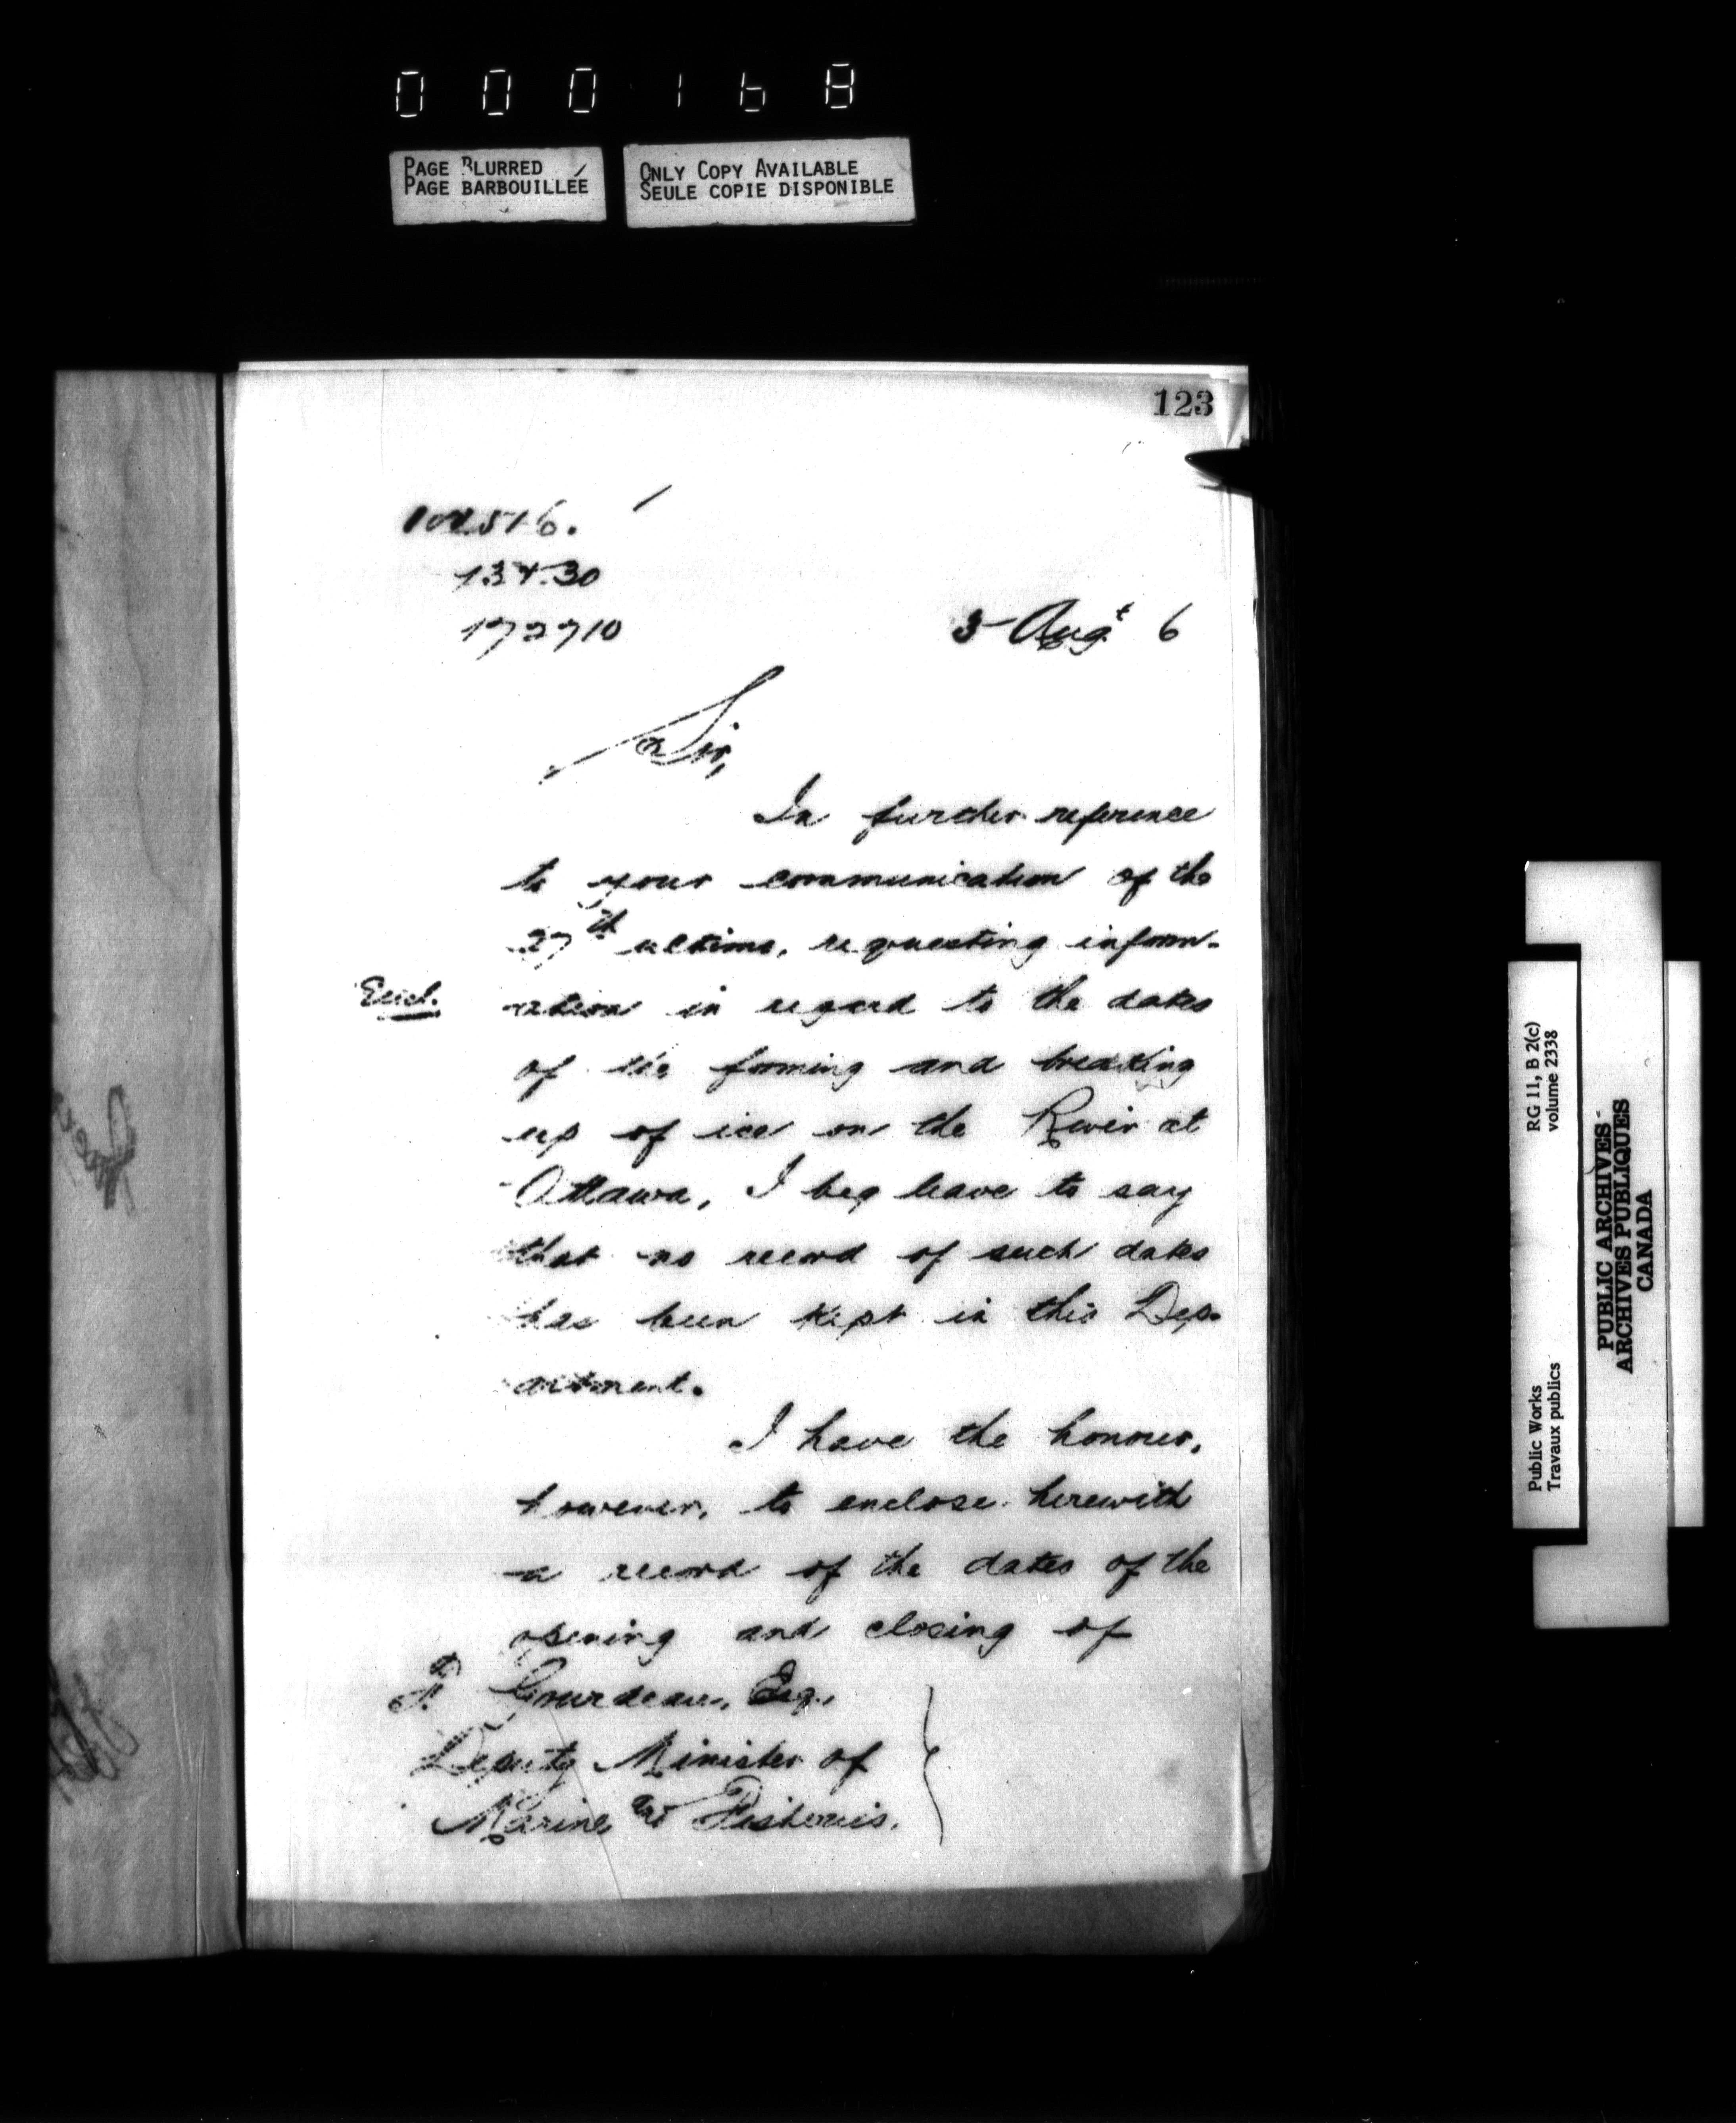 000168
PAGE BLURRED
PAGE BARBOUILLÉE
ONLY COPY AVAILABLE
SEULE COPIE DISPONIBLE
123
172710
3 Augt 6
Sir,
In further reference
to your communication of the
27th ultimo, requesting inform-
Encl.
ation in regard to the dates
of the forming and breaking
up of ice on the River at
Ottawa, I beg leave to say
that no record of such dates
has been kept in this Dep-
artment.
I have the honour,
however, to enclose herewith
a record of the dates of the
opening and closing of
F. Gourdeau, Esq.,
Deputy Minister of
Marine and Fisheries.
RG 11, B 2(c)
volume 2338
Public Works
Travaux publics
PUBLIC ARCHIVES
ARCHIVES PUBLIQUES
CANADA